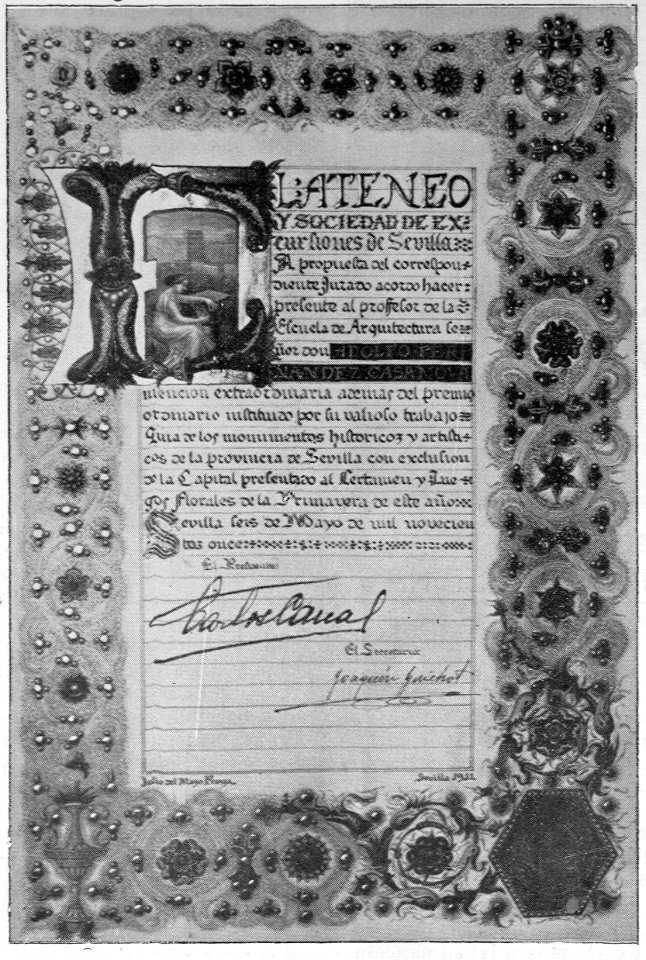 EL ATENEO
Y SOCIEDAD DE EX
cursiones de Sevilla
A propuesta del correspon
diente Jurado acordo hacer
presente al proffesor de la
Escuela de Arquitectura se
ñor don ADOLFO FER
NANDEZ CASANOVA
mencion extraordinaria ademas del premio
ordinario instituido por su valioso trabajo
Guia de los monumentos historicos y artisti
cos de la provincia de Sevilla con exclusion
de la Capital presentado al Certamen y Jue
gos Florales de la Primavera de este año
Sevilla seis de Mayo de mil novecien
tos once
El Presidente:
Carlos Cañal
El Secretario:
Joaquín Guichot
Julio del Mazo Franza
Sevilla 1911